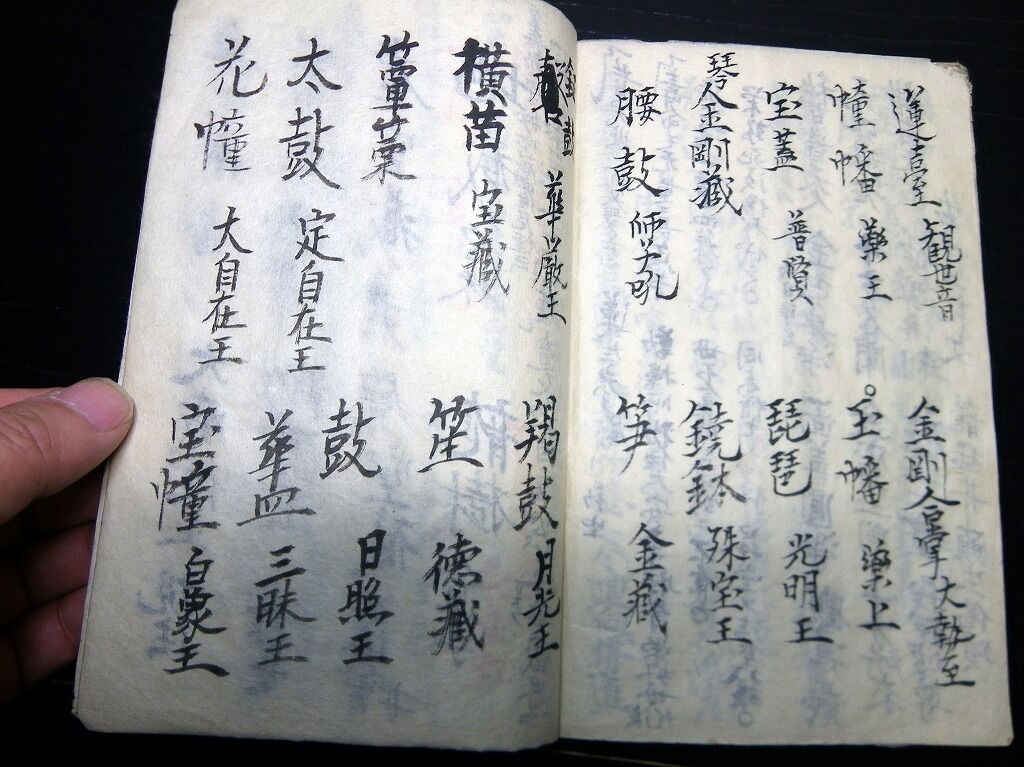 蓮臺 観世音 金剛合掌 大勢至
幢幡 藥王 玉幡 藥上
宝蓋 普賢 琵琶 光明王
琴 金剛藏 鐃鉢 殊宝王
腰鼓 師子吼 箏 金藏
華嚴王 羯鼓 月光王
横笛 宝藏 笙 德藏
篳篥 鼓 日照王
太鼓 定自在王 華皿 三昧王
花幢 大自在王 宝幢 白象王